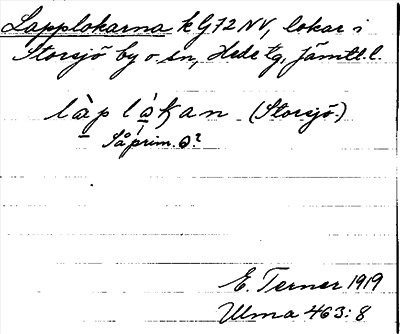 Lapplokarna k G72 NV, lokar i
Storsjö by o sn, Hede tg, Jämtl. l.
làplåkan (Storsjö.)
Så prim.
E. Terner 1919
Ulma 463:8